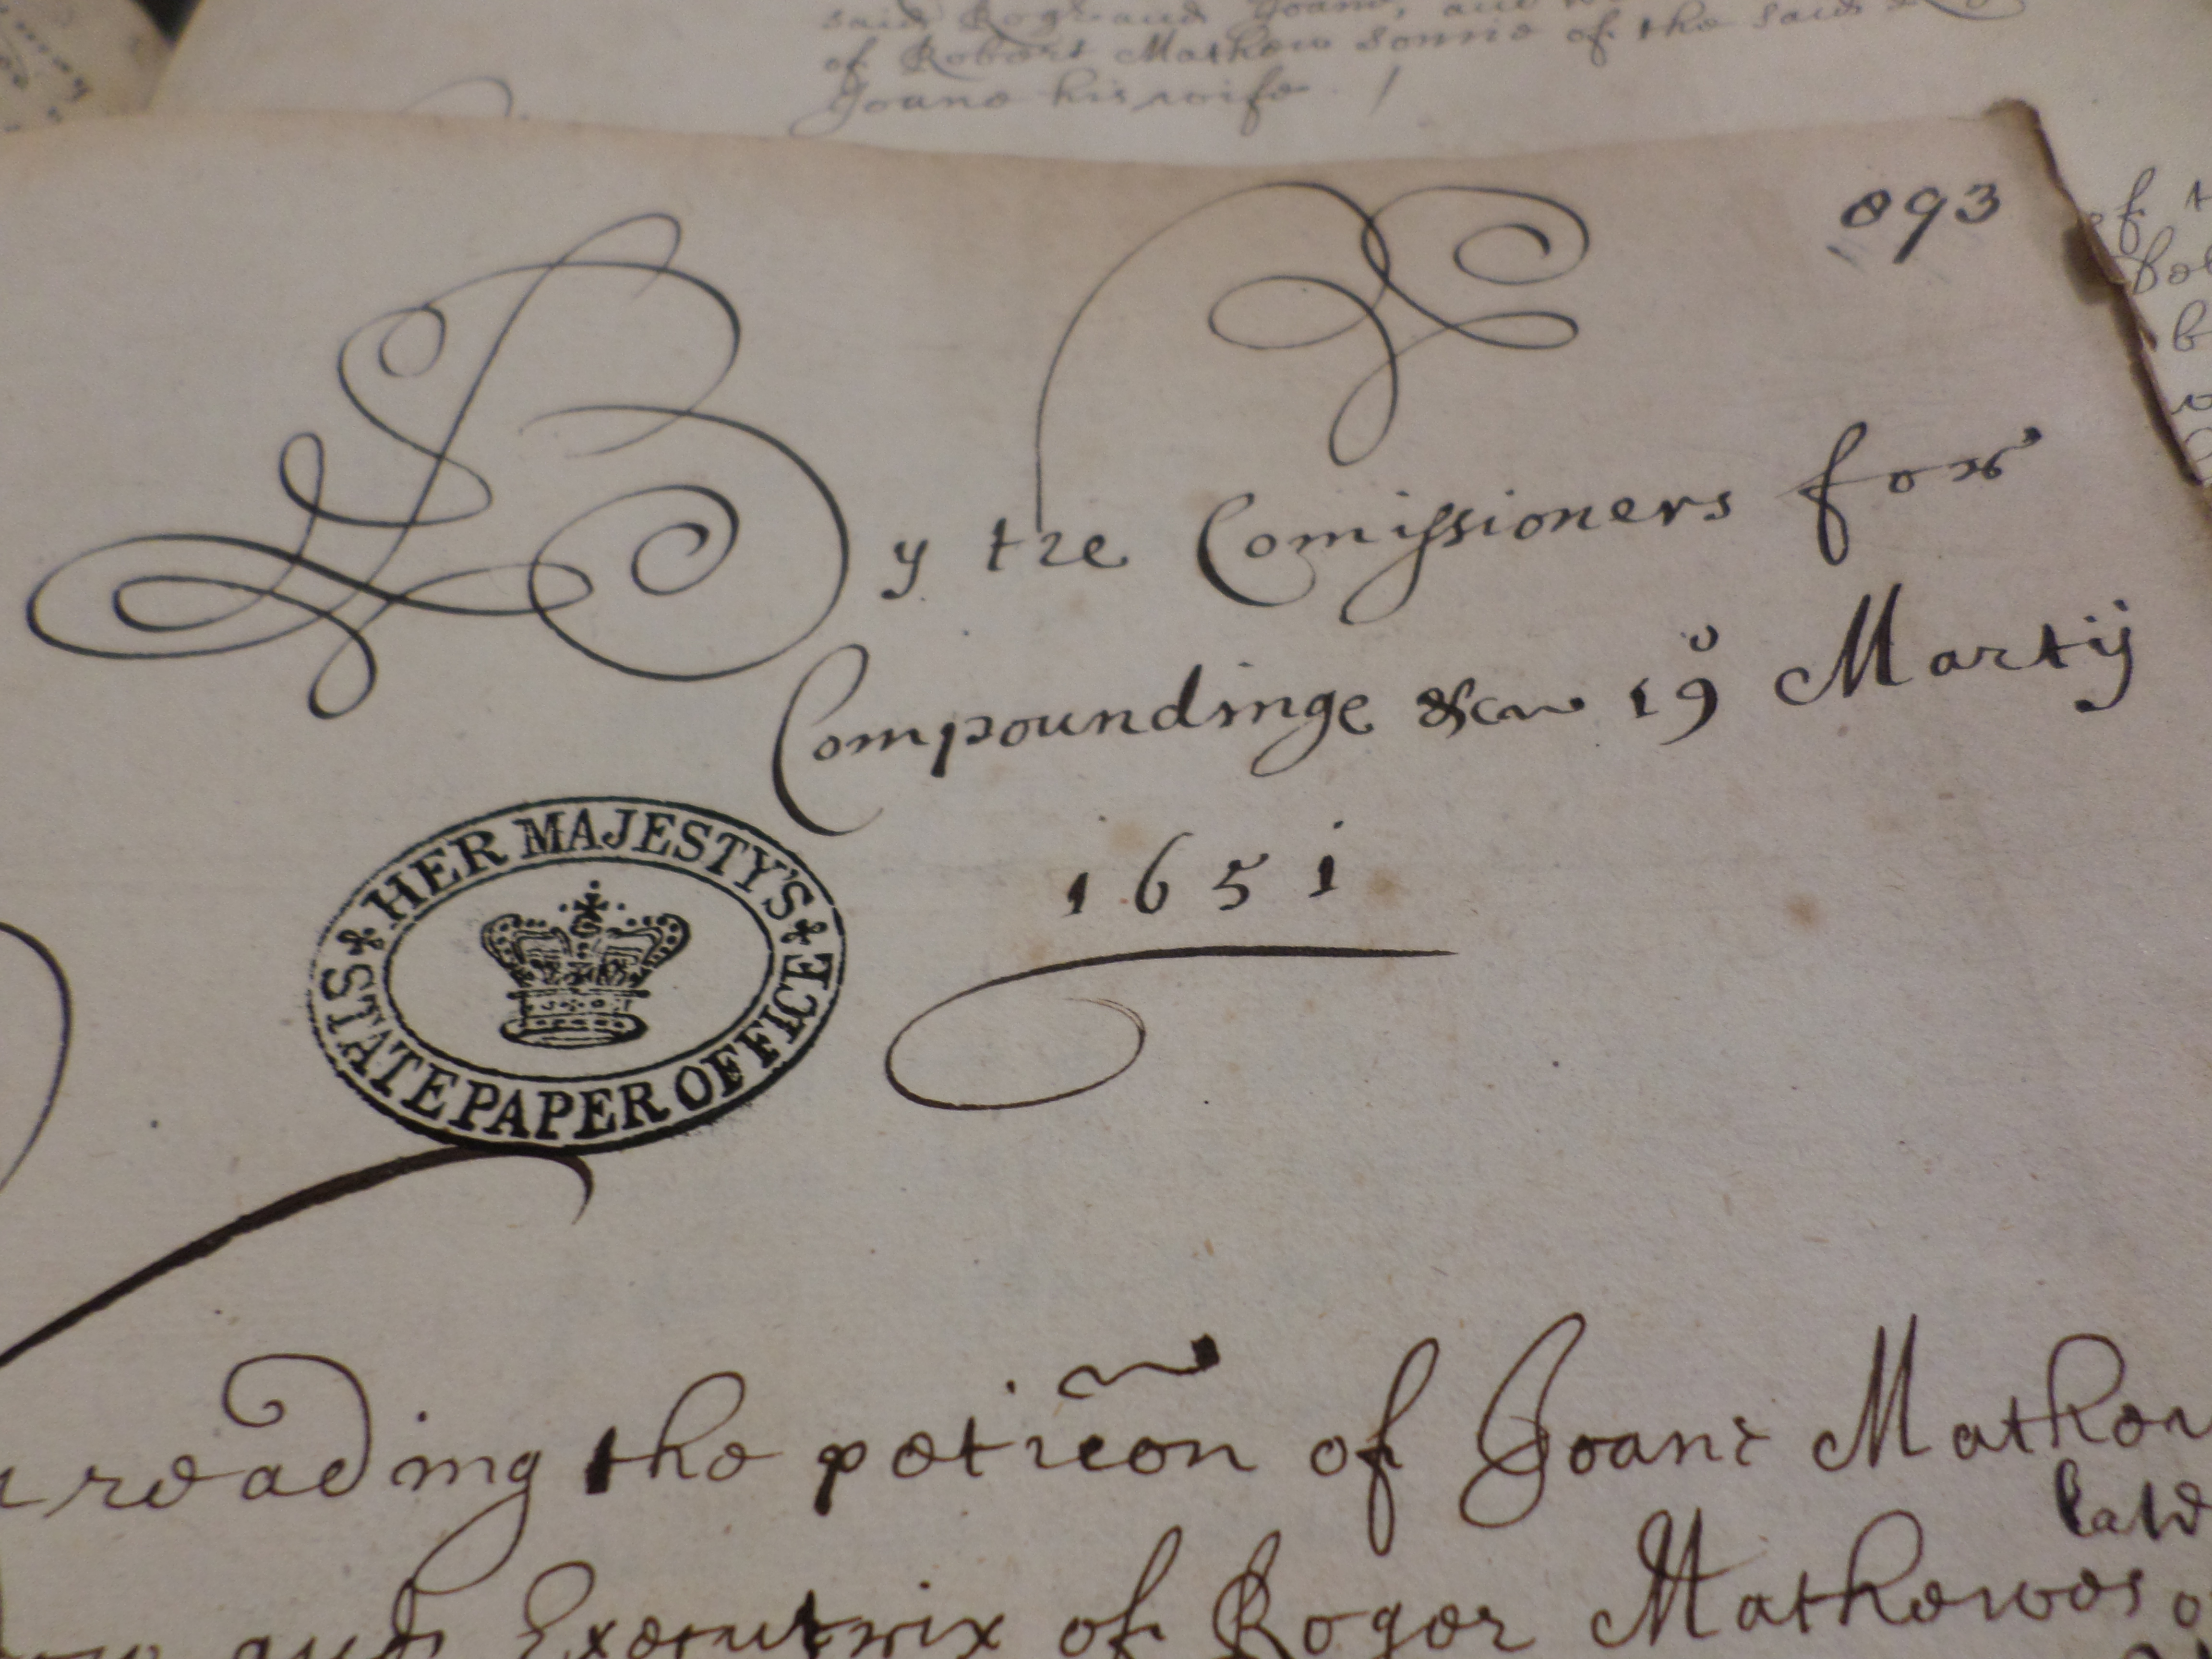 said Rogr and Joane, and
of Robert Mathew sonne of the said
Joane his wife /
893
By the Comissioners for
Compoundinge &c 19º Martij
1651
HER MAJESTY'S
STATE PAPER OFFICE
reading the peticõn of Joane Mathew
late
and Executrix of Roger Mathewes